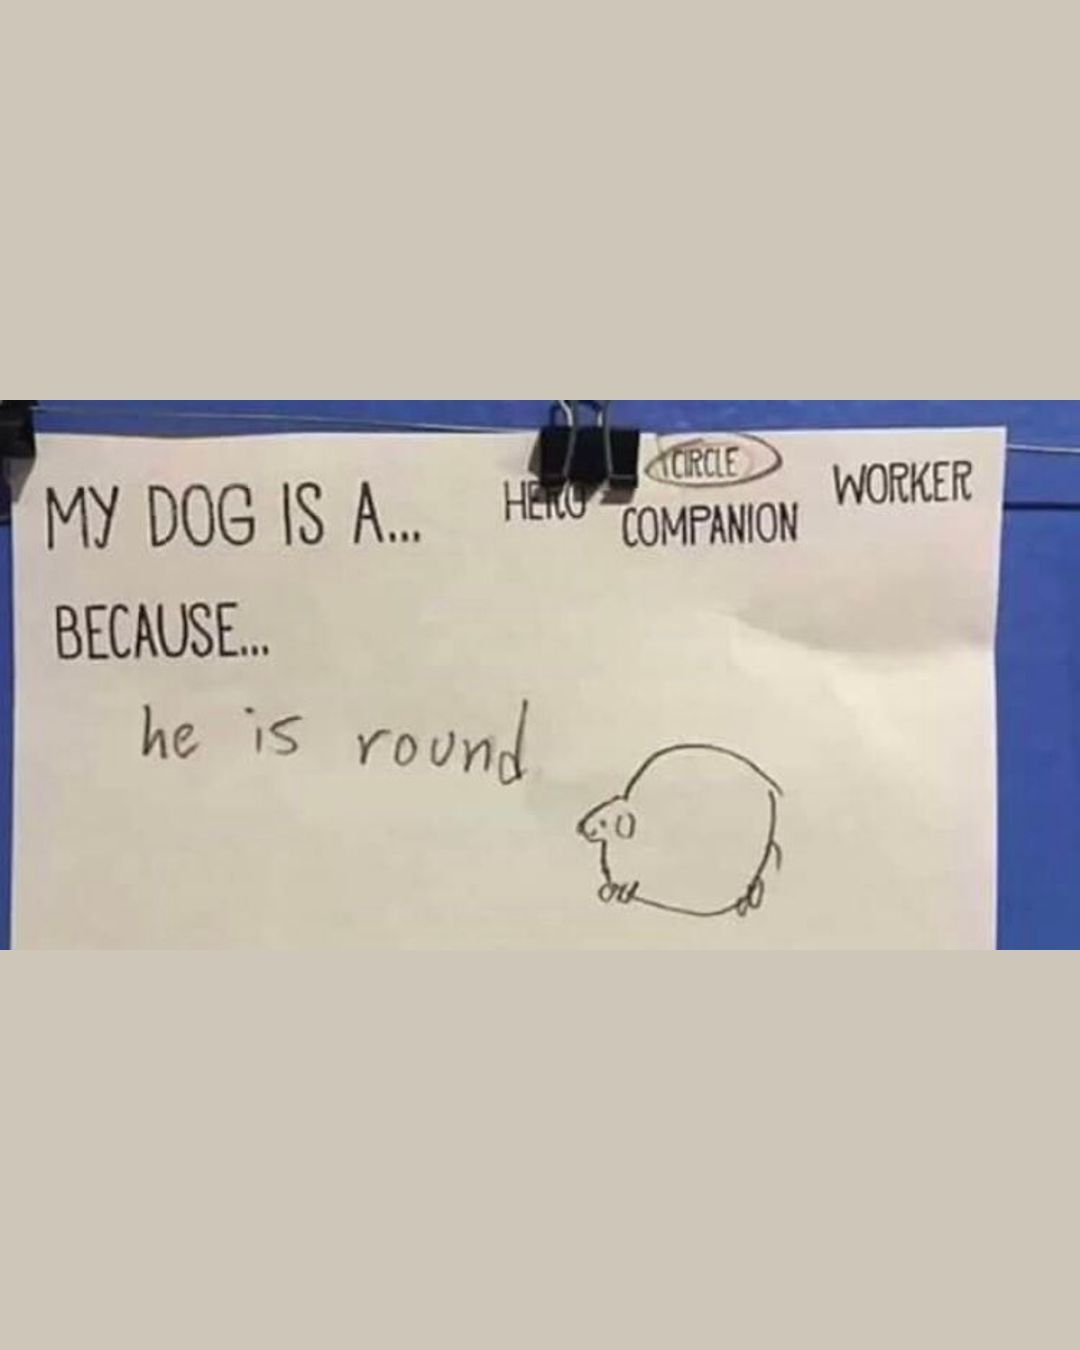 MY DOG IS A...
HERO
(CIRCLE
COMPANION
WORKER
BECAUSE...
he is round